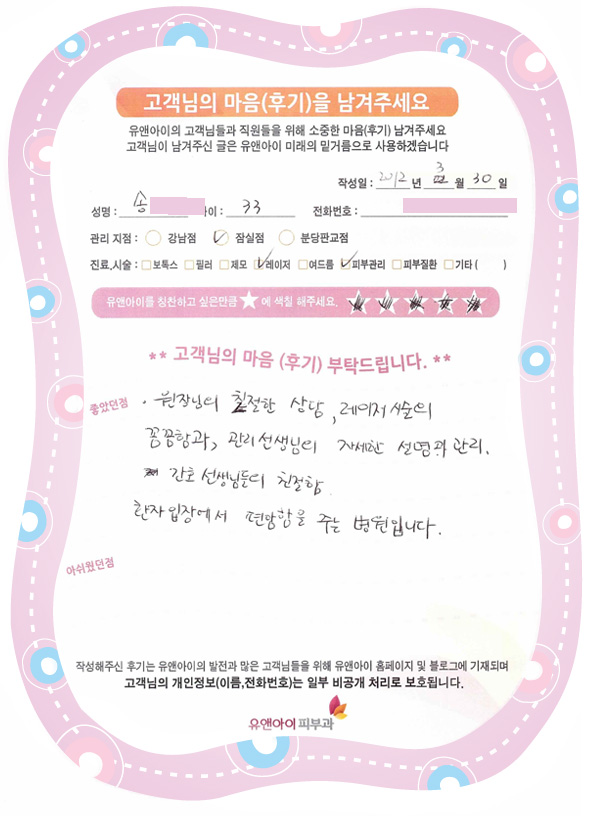 고객님의 마음(후기)을 남겨주세요
유앤아이의 고객님들과 직원들을 위해 소중한 마음(후기) 남겨주세요
고객님이 남겨주신 글은 유앤아이 미래의 밑거름으로 사용하겠습니다
작성일 : 2012 년 3 월 30 일
성명 : 송 나이 : 33 전화번호 :
관리 지점 : 강남점 잠실점 분당판교점
진료,시술 : 보톡스 필러 제모 레이저 여드름 피부관리 피부질환 기타 ( )
유앤아이를 칭찬하고 싶은만큼 ★에 색칠 해주세요.
** 고객님의 마음 (후기) 부탁드립니다. **
좋았던점
· 원장님의 친절한 상담, 레이저 시술의
꼼꼼함과, 관리선생님의 자세한 설명과 관리.
간호 선생님들의 친절함
환자 입장에서 편안함을 주는 병원입니다.
아쉬웠던점
작성해주신 후기는 유앤아이의 발전과 많은 고객님들을 위해 유앤아이 홈페이지 및 블로그에 기재되며
고객님의 개인정보(이름,전화번호)는 일부 비공개 처리로 보호됩니다.
유앤아이피부과